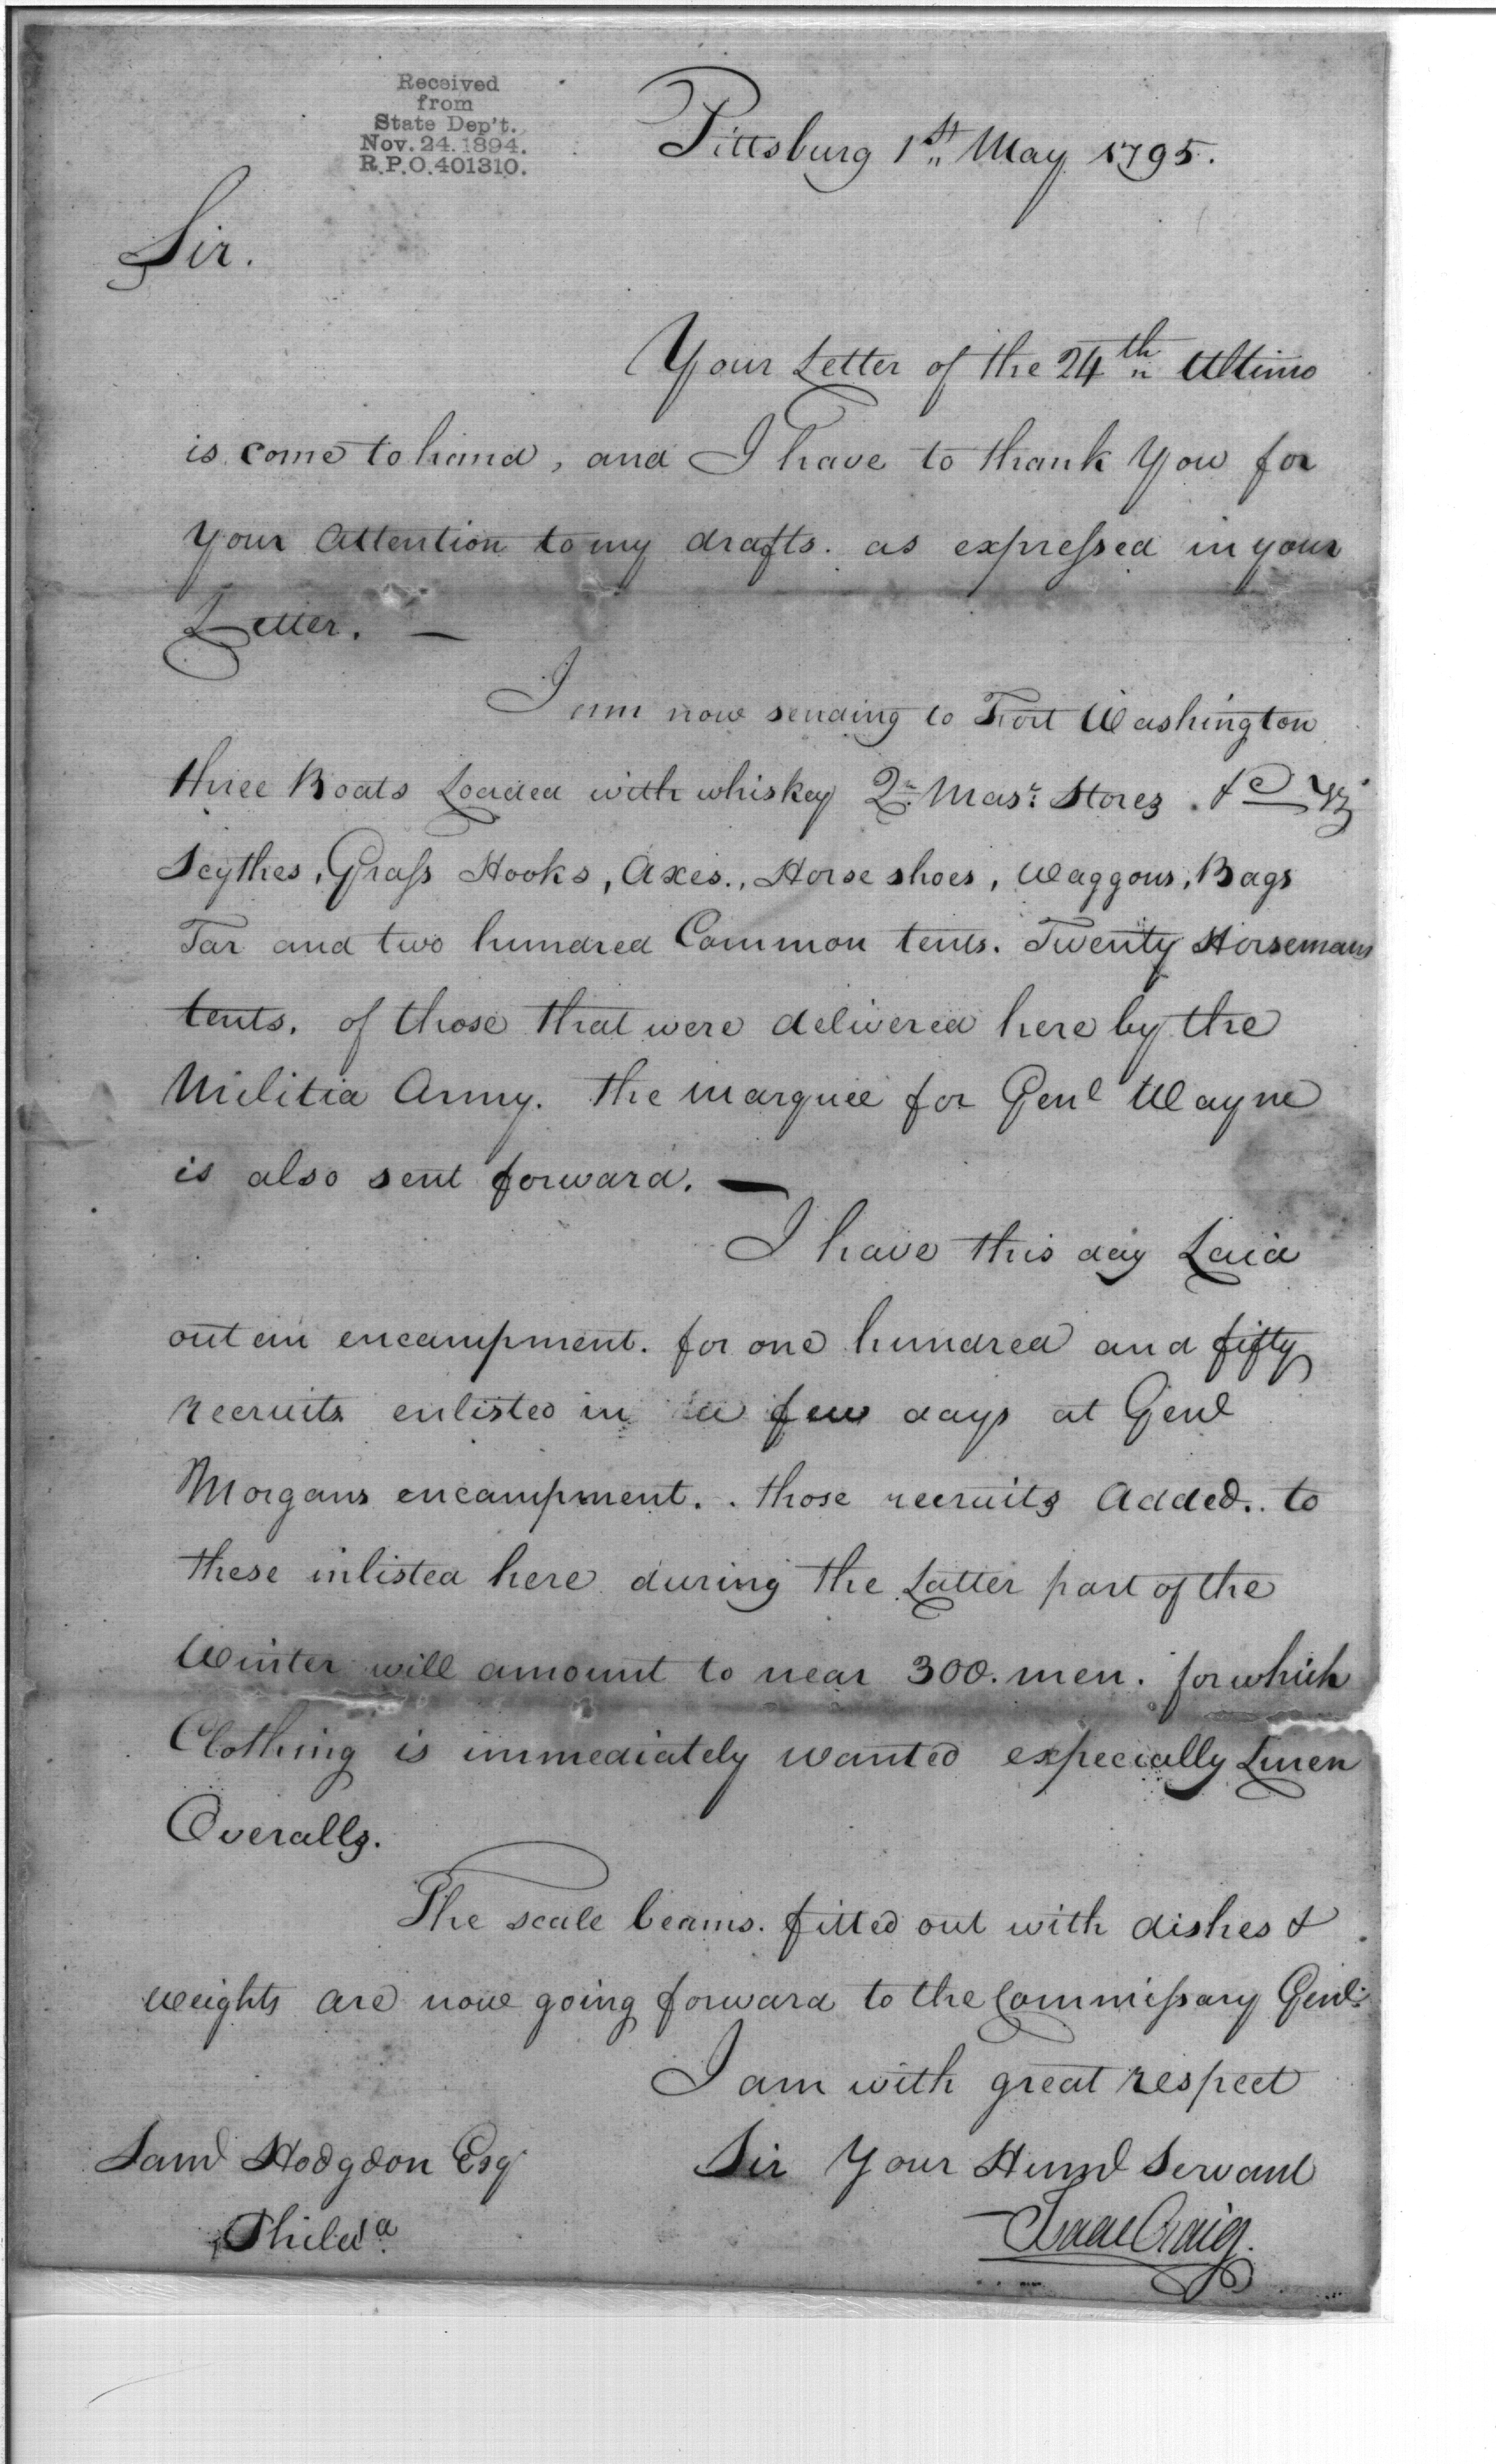 Received
from
State Dep't.
Nov. 24. 1894.
R.P.O. 401310.
Pittsburg 1st May 1795.
Sir.
Your Letter of the 24th Ultimo
is come to hand, and I have to thank You for
your Attention to my drafts. as expressed in your
Letter. —
I am now sending to Fort Washington
three Boats Loaded with whiskey Qr. Masr. Stores. &c Viz
Scythes, Grass Hooks, Axes., Horse shoes, Waggons, Bags
Tar and two hundred Common tents. Twenty Horsemans
tents. of those that were delivered here by the
Militia Army. The marquee for Genl Wayne
is also sent forward. —
I have this day Laid
out an encampment. for one hundred and fifty
recruits enlisted in a few days at Genl
Morgans encampment. . those recruits Added.. to
these inlisted here during the Latter part of the
Winter will amount to near 300. men. for which
Clothing is immediately wanted expecially Linen
Overalls.
The scale beams. fitted out with dishes &
weights are now going forward to the Commissary Genl.
I am with great respect
Saml Hodgdon Esq
Sir Your Huml Servant
Philada
Isaac Craig.